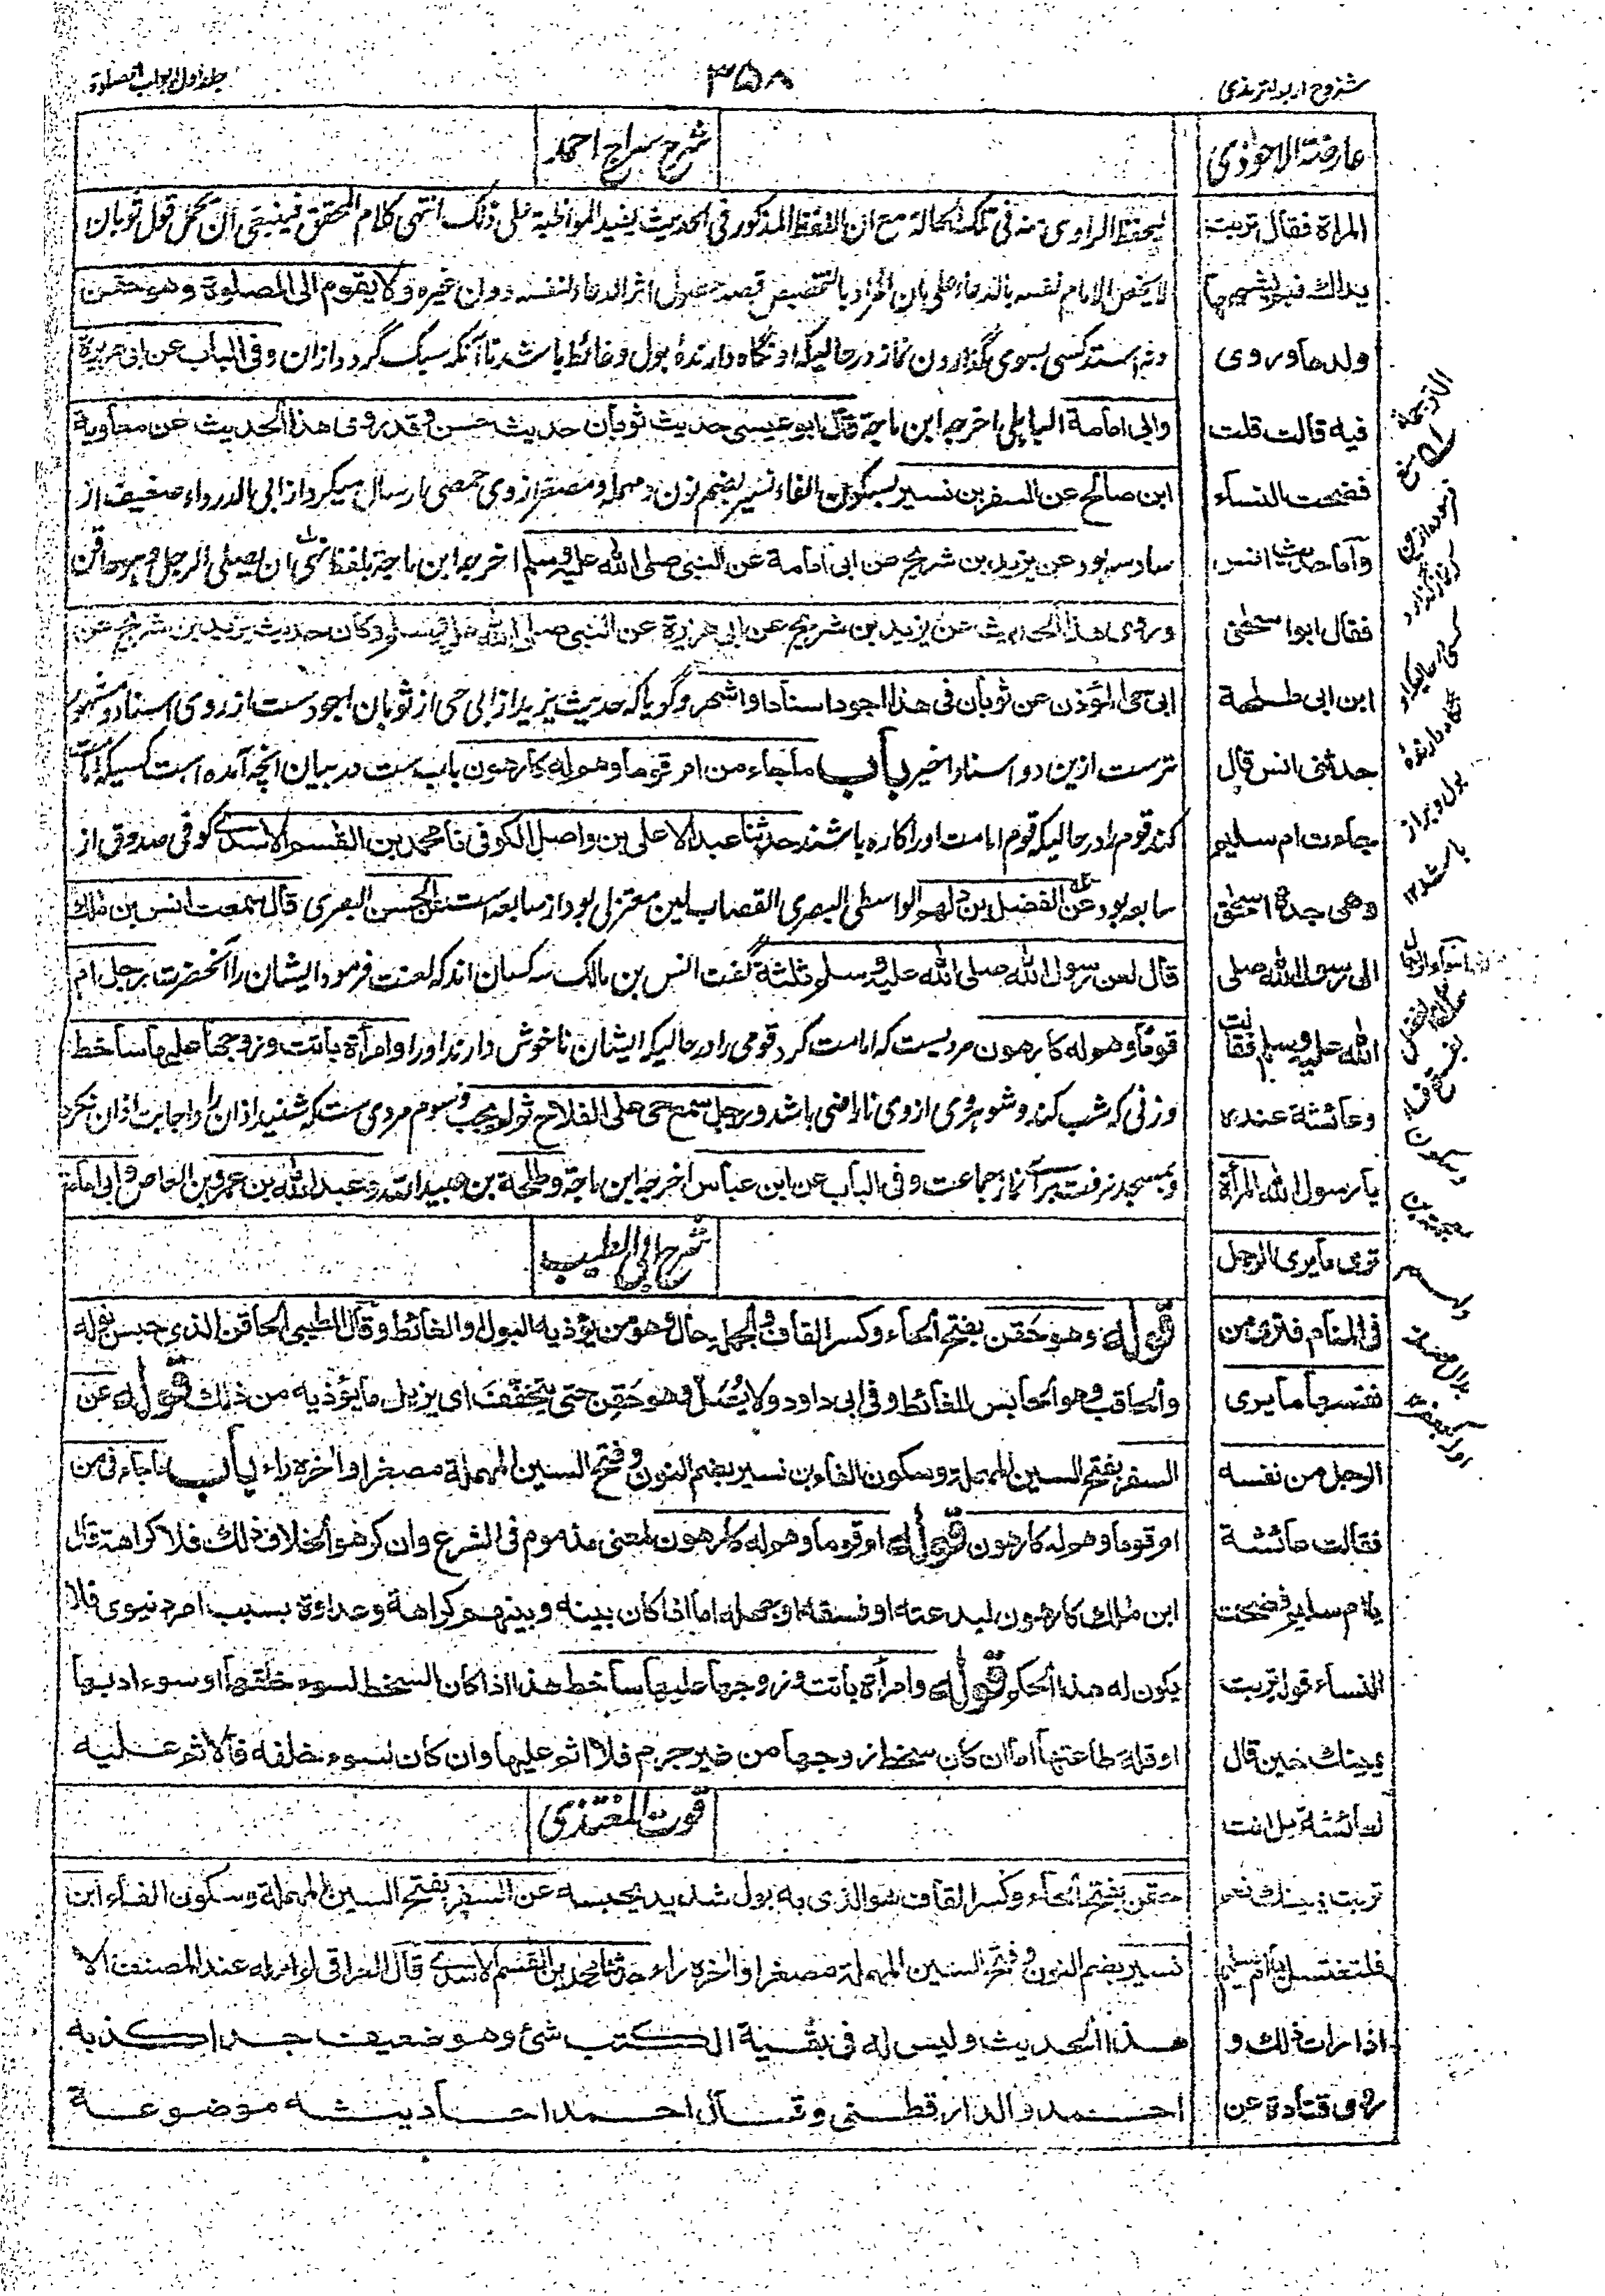 شروح اربعه ترمذی
٣٥٨
جلد اول ابواب الصلوة
عارضة الاحوذی
المراة فقال تربت
يداك فبم يشبهها
ولدها وروی
فيه قالت قلت
فضحت النساء
وأما حديث انس
فقال ابو اسحٰق
ابن ابی طلحة
حدثنی انس قال
جاءت ام سليم
وهی جدة اسحٰق
الی رسول الله صلی
الله عليه وسلم فقالت
وعائشة عنده
يا رسول الله المرأة
تری ما يری الرجل
فی المنام فتری من
نفسها ما يری
الرجل من نفسه
فقالت عائشة
يا ام سليم فضحت
النساء قوله تربت
يمينك حين قال
لعائشة بل انت
تربت يمينك نعم
فلتغتسل يا ام سليم
اذا رات ذلك و
روی قتادة عن
شرح سراج احمد
الراوی منه فی تلك الحالة مع ان اللفظ المذكور فی الحديث يفيد المواظبة علی ذلك انتهی كلام المحقق فينبغی ان يحمل قول ثوبان
لا يخص الامام نفسه بالدعاء علی بان المراد بالتخصيص قصد حصول اثر الدعاء لنفسه دون غيره ولا يقوم الی الصلوة وهو حقن
ونه ایستد کسی بسوی گذاردن نماز در حالیکه او نگاه دارندهٔ بول و غائط باشد تا آنکه سبک گردد ازان وفی الباب عن ابی هريرة
وابی امامة الباهلی اخرجه ابن ماجة قال ابو عيسی حديث ثوبان حديث حسن وقد روی هذا الحديث عن معاوية
ابن صالح عن السفر بن نسير بسكون الفاء نسير بضم نون ومهمله ومصغر ازوی حمصی ارسال میکرد از ابی الدرداء ضعيف از
سادسه بود عن يزيد بن شريح عن ابی امامة عن النبی صلی الله عليه وسلم اخرجه ابن ماجة بلفظ نهی ان يصلی الرجل وهو حاقن
وروی هذا الحديث عن يزيد بن شريح عن ابی هريرة عن النبی صلی الله عليه وسلم وكان حديث يزيد بن شريح عن
ابی حی المؤذن عن ثوبان فی هذا اجود اسنادا واشهر وگویا که حدیث یزید از ابی حی از ثوبان اجود ست از روی اسناد و مشهور
ترست ازین دو اسناد اخیر باب ما جاء من ام قوما وهم له كارهون باب ست در بیان آنچه آمده است کسیکه امامت
کند قوم را در حالیکه قوم امامت او را کاره باشند حدثنا عبد الاعلی بن واصل الكوفی نا محمد بن القسم الاسدی کوفی صدوقی از
سابعه بود عن الفضل بن دلهم الواسطی البصری القصاب لین معتزلی بود از سابعه است عن الحسن البصری قال سمعت انس بن مالك
قال لعن رسول الله صلی الله عليه وسلم ثلثة گفت انس بن مالک سه کسان اند که لعنت فرمود ایشان را آنحضرت رجل ام
قوما وهم له كارهون مردیست که امامت کرد قومی را در حالیکه ایشان ناخوش دارند او را وامرأة باتت وزوجها عليها ساخط
وزنی که شب کند و شوهر وی ازوی ناراضی باشد ورجل سمع حی علی الفلاح ثم لم يجب وسوم مردی ست که شنید اذان را و اجابت اذان نکرد
وبمسجد نرفت برای نماز جماعت وفی الباب عن ابن عباس اخرجه ابن ماجة وطلحة بن عبيد الله وعبد الله بن عمرو بن العاص وابی امامة
شرح ابی الطيب
قوله وهو حقن بفتح الحاء وكسر القاف والجملة حال وهو من يؤذيه البول او الغائط وقال الطيبی الحاقن الذی حبس بوله
والحاقب هو الحابس للغائط وفی ابی داود ولا يصل وهو حقن حتی يتخفف ای يزيل ما يؤذيه من ذلك قوله عن
السفر بفتح السين المهملة وسكون الفاء بن نسير بضم النون وفتح السين المهملة مصغرا واخره راء باب ما جاء فی من
ام قوما وهم له كارهون قوله ام قوما وهم له كارهون لمعنی مذموم فی الشرع وان كرهوا لخلاف ذلك فلا كراهة قال
ابن ملك كارهون لبدعته او فسقه او جهله اما اذا كان بينه وبينهم كراهة وعداوة بسبب امر دنيوی فلا
يكون له هذا الحكم قوله وامرأة باتت وزوجها عليها ساخط هذا اذا كان السخط لسوء خلقها او سوء ادبها
او قلة طاعتها اما ان كان سخط زوجها من غير جرم فلا اثم عليها وان كان لسوء خلقه فالاثم عليه
قوت المغتذی
حقن بفتح الحاء وكسر القاف هو الذی به بول شديد يحبسه عن السفر بفتح السين المهملة وسكون الفاء ابن
نسير بضم النون وفتح السين المهملة مصغرا واخره راء حدثنا محمد بن القسم الاسدی قال العراقی لم ار له عند المصنف الا
هذا الحديث وليس له فی بقية الكتب شئ وهو ضعيف جدا كذبه
احمد والدارقطنی وقال احمد احاديثه موضوعة
نگاه دارندهٔ
بول و براز
باشد ١٢